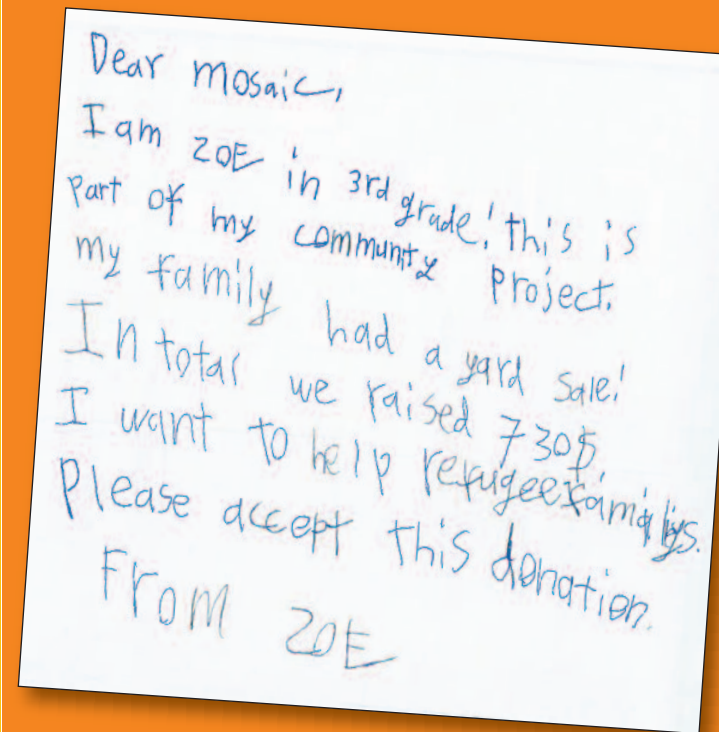 Dear mosaic,
I am ZOE in 3rd grade! this is
part of my community project.
my family had a yard sale!
In total we raised 730$
I want to help refugee familys.
Please accept this donation.
From ZOE